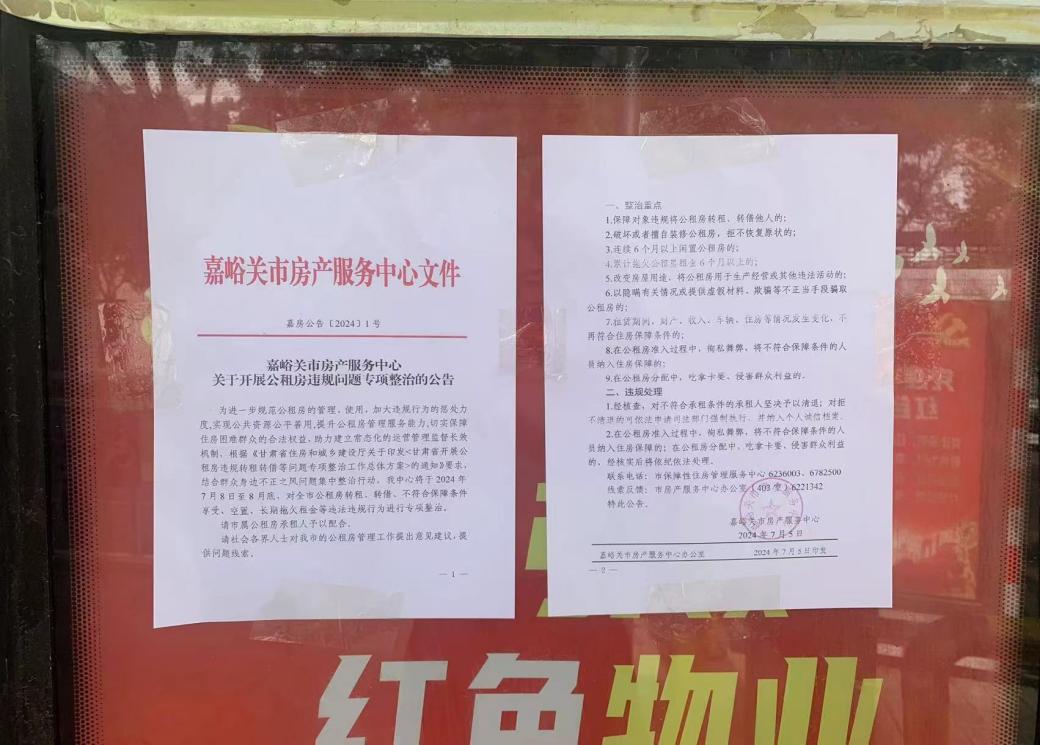 嘉峪关市房产服务中心文件
嘉房公告〔2024〕1号
嘉峪关市房产服务中心
关于开展公租房违规问题专项整治的公告
为进一步规范公租房的管理、使用，加大违规行为的惩处力
度,实现公共资源公平善用,提升公租房管理服务能力,切实保障
住房困难群众的合法权益，助力建立常态化的运营管理监督长效
机制，根据《甘肃省住房和城乡建设厅关于印发<甘肃省开展公
租房违规转租转借等问题专项整治工作总体方案>的通知》要求，
结合群众身边不正之风问题集中整治行动。我中心将于2024年
7月8日至8月底，对全市公租房转租、转借、不符合保障条件
享受、空置、长期拖欠租金等违法违规行为进行专项整治。
请市属公租房承租人予以配合。
请社会各界人士对我市的公租房管理工作提出意见建议，提
供问题线索。
— 1 —
一、整治重点
1.保障对象违规将公租房转租、转借他人的；
2.破坏或者擅自装修公租房，拒不恢复原状的；
3.连续6个月以上闲置公租房的；
4.累计拖欠公租房租金6个月以上的；
5.改变房屋用途、将公租房用于生产经营或其他违法活动的；
6.以隐瞒有关情况或提供虚假材料、欺骗等不正当手段骗取
公租房的；
7.租赁期间，财产、收入、车辆、住房等情况发生变化，不
再符合住房保障条件的；
8.在公租房准入过程中，徇私舞弊，将不符合保障条件的人
员纳入住房保障的；
9.在公租房分配中，吃拿卡要、侵害群众利益的。
二、违规处理
1.经核查，对不符合承租条件的承租人坚决予以清退；对拒
不清退的可依法申请司法部门强制执行，并纳入个人诚信档案。
2.在公租房准入过程中，徇私舞弊，将不符合保障条件的人
员纳入住房保障的；在公租房分配中，吃拿卡要、侵害群众利益
的，经核实后将依纪依法处理。
联系电话：市保障性住房管理服务中心 6236003、6782500
线索反馈：市房产服务中心办公室（403室）6221342
特此公告。
嘉峪关市房产服务中心
2024年7月5日
嘉峪关市房产服务中心办公室 2024年7月5日印发
— 2 —
红色物业